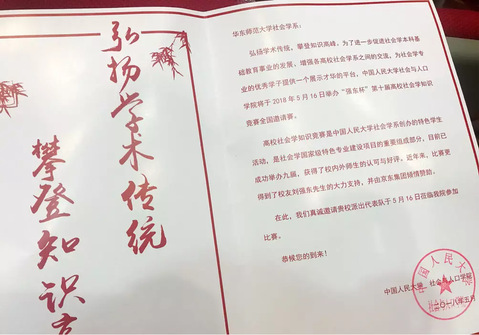 弘扬学术传统
攀登知识高
华东师范大学社会学系：
弘扬学术传统，攀登知识高峰，为了进一步促进社会学本科基
础教育事业的发展，增强各高校社会学系之间的交流，为社会学专
业的优秀学子提供一个展示才华的平台，中国人民大学社会与人口
学院将于2018年5月16日举办“强东杯”第十届高校社会学知识
竞赛全国邀请赛。
高校社会学知识竞赛是中国人民大学社会学系创办的特色学生
活动，是社会学国家级特色专业建设项目的重要组成部分，目前已
成功举办九届，获得了校内外师生的认可与好评。近年来，比赛更
得到了校友刘强东先生的大力支持，并由京东集团倾情赞助。
在此，我们真诚邀请贵校派出代表队于5月16日莅临我院参加
比赛。
恭候您的到来！
中国人民大学 社会与人口学院
二〇一八年五月
中国人民大学